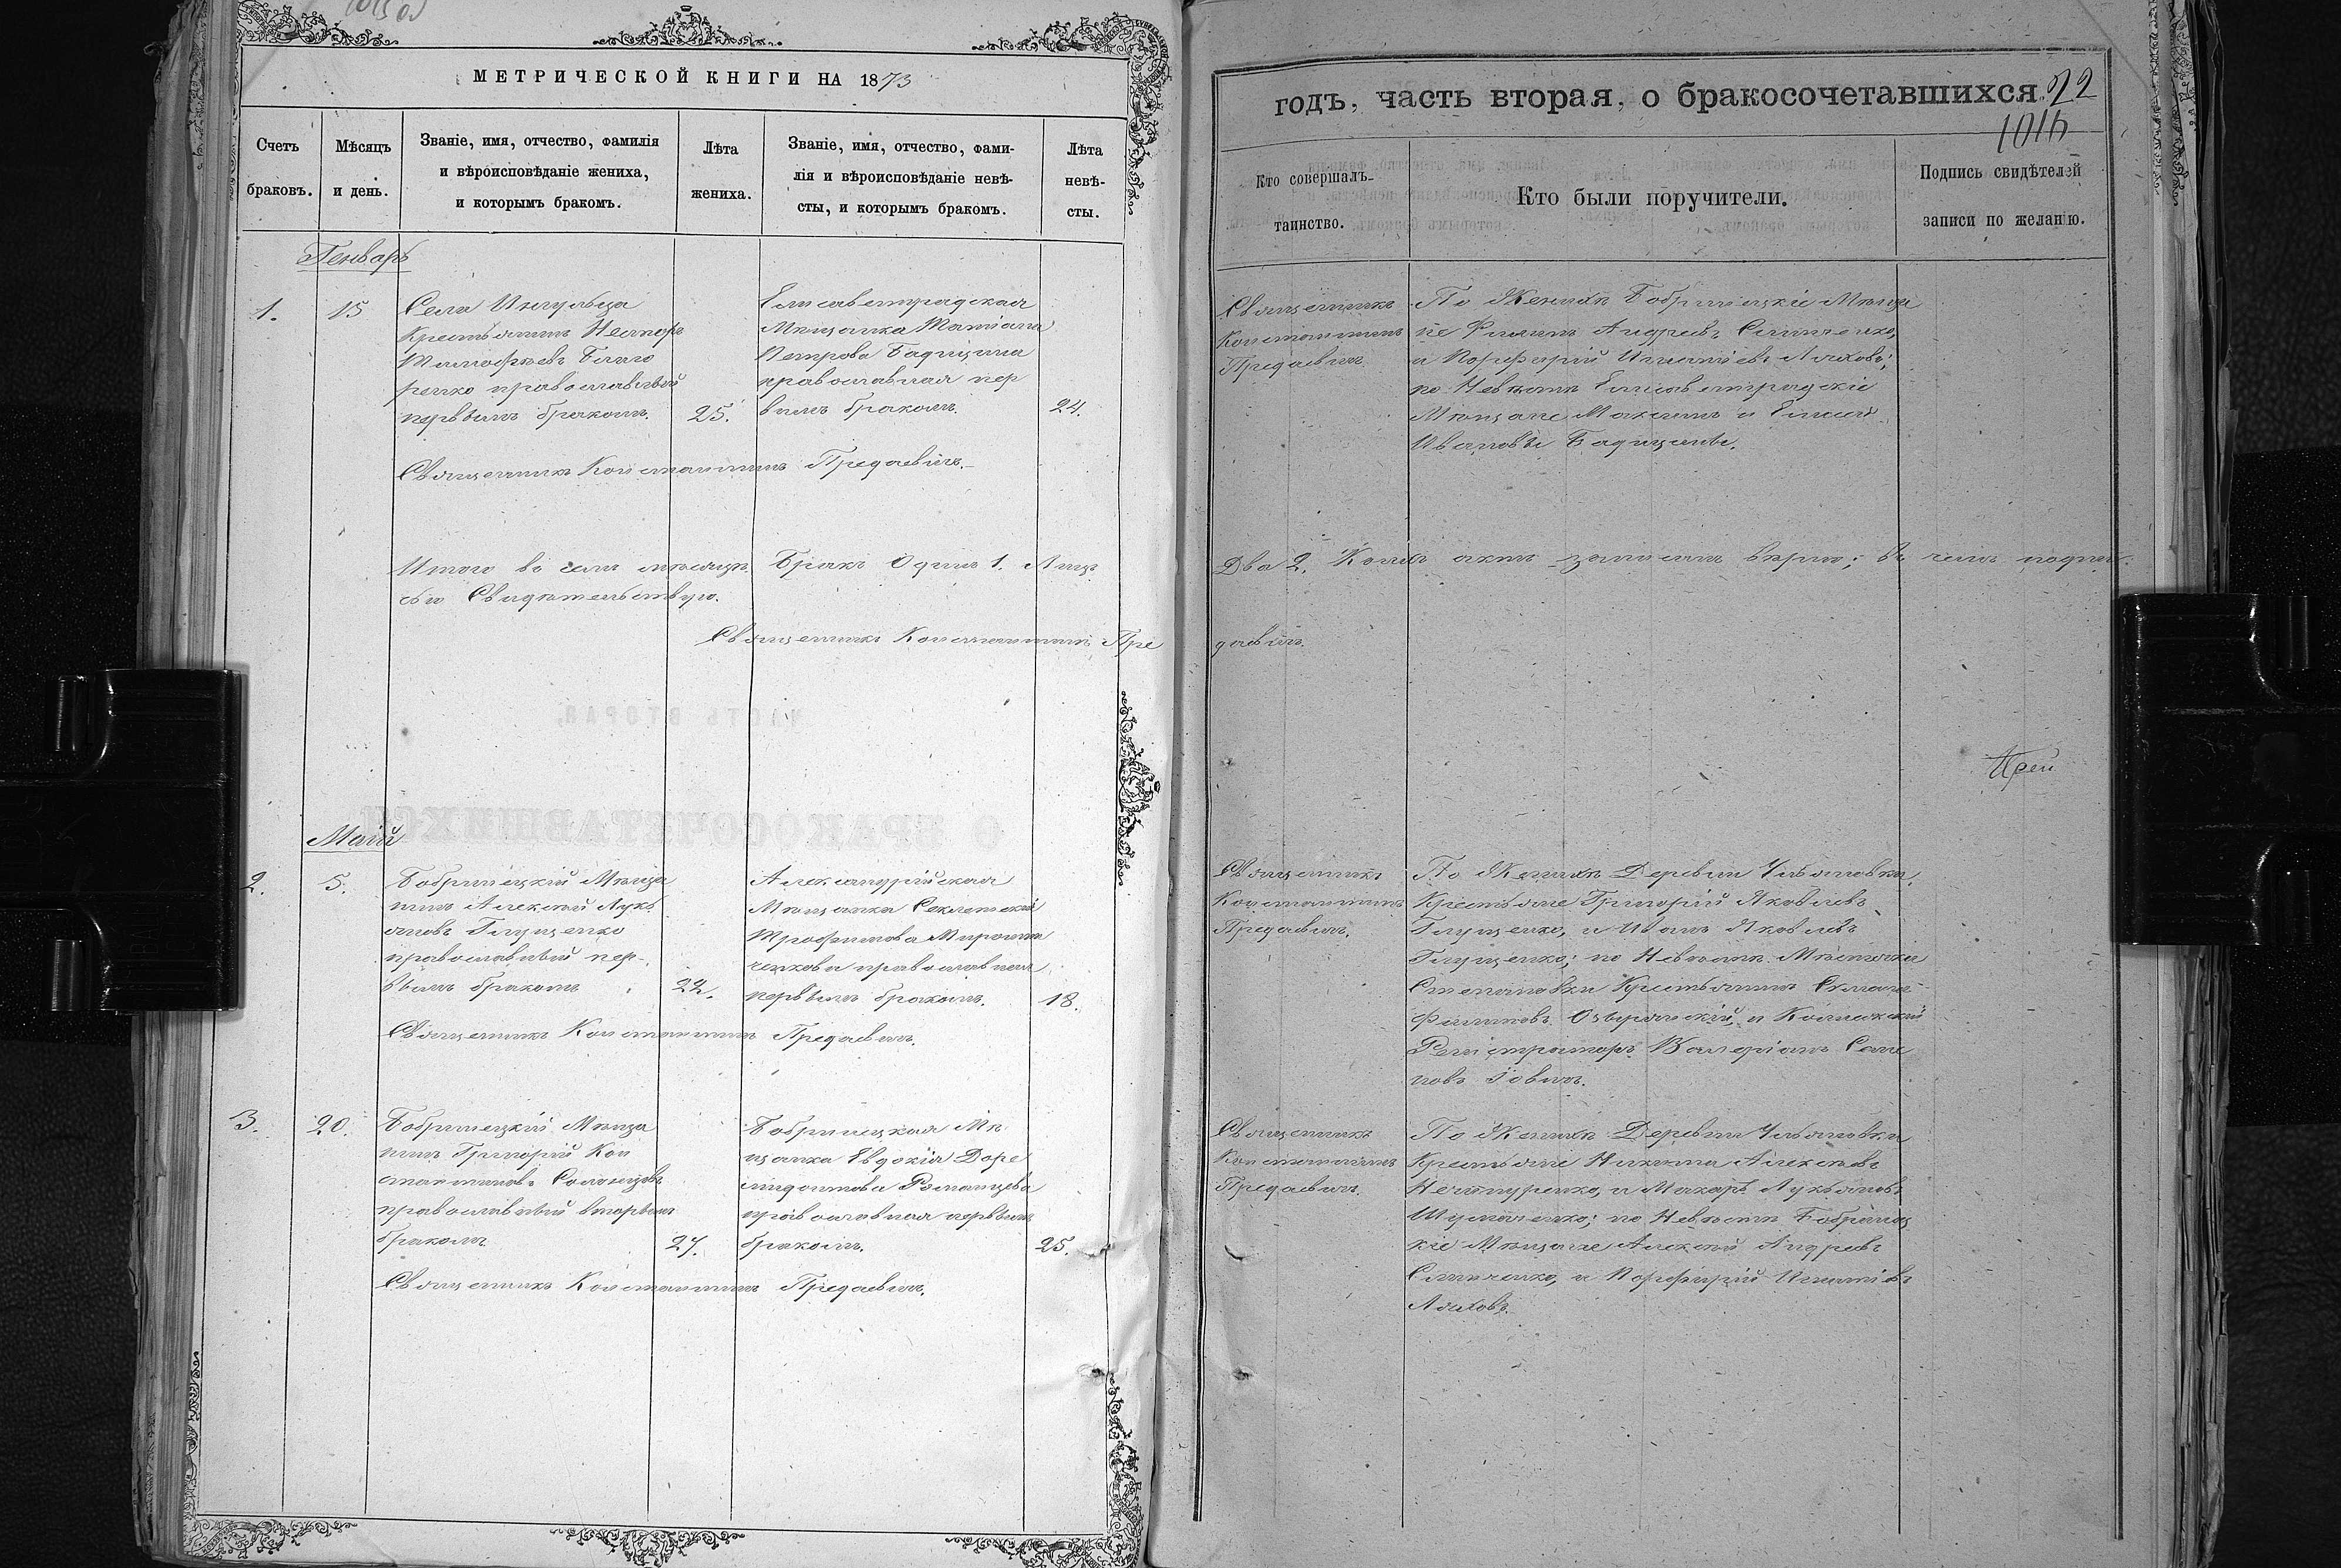 МЕТРИЧЕСКОЙ КНИГИ НА 1873
Счетъ браковъ.
Мѣсяцъ и день.
Званіе, имя, отчество, фамилія
и вѣроисповѣданіе жениха,
и которымъ бракомъ.
Лѣта жениха.
Званіе, имя, отчество, фами-
лія и вѣроисповѣданіе невѣ-
сты, и которымъ бракомъ.
Лѣта невѣ-
сты.
Генварь
1.
15
Села Ингульца
Крестьянинъ Несторъ
Тимофѣевъ
православный
первымъ бракомъ.
25.
Елисаветрадская
Мѣщанка Татіана
Петрова Бадицина
православная пер
вымъ бракомъ.
24.
Священникъ Константинъ Предаевичъ.
Итого въ семъ мѣсяцѣ Бракъ Одинъ 1. Лицъ
Свидѣтельствую.
Священникъ Константинъ Пре
Маій
2.
5.
Бобринецкій Мѣща
нинъ Алексѣй Лукь
яновъ Глущенко
православный пер-
вымъ бракомъ
22.
Александрійская
Мѣщанка
Трофимова Мирошни
ченкова православная
первымъ бракомъ.
18.
Священникъ Константинъ Предаевичъ.
3.
20.
Бобринецкій Мѣща
нинъ Григорій Кон
стантиновъ
православный вторымъ
бракомъ.
27.
Бобринецкая Мѣ
щанка Евдокія Доре
Романцева
православная первымъ
бракомъ.
25.
Священникъ Константинъ Предаевичъ.
годъ, часть вторая, о бракосочетавшихся.
22
1016
Кто совершалъ
таинство.
Кто были поручители.
Подпись свидѣтелей
записи по желанію.
Священникъ
Константинъ
Предаевичъ.
По Женихѣ Бобринецкіе Мѣща
не Филипъ Андреевъ Сниченко,
и Порфирій Игнатіевъ Ляховъ;
по Невѣстѣ Елисаветрадскіе
Мѣщане Максимъ и Елисей
Ивановы Бадицины.
Два 2. актъ записанъ вѣрно; въ чемъ подпи
даевичъ.
Священникъ
Константинъ
Предаевичъ.
По Женихѣ Деревни
Крестьяне Григорій Яковлевъ
Глущенко, и Иванъ Яковлевъ
Глущенко; по Невѣстѣ Мѣстечка
Степановки Крестьянинъ
Филиповъ и Коллежскій
Регистраторъ Валеріанъ Семе
новъ
Священникъ
Константинъ
Предаевичъ.
По Женихѣ Деревни
Крестьяне Никита Алексѣевъ
Нечипуренко, и Макаръ Лукьяновъ
по Невѣстѣ Бобринец
кіе Мѣщане Алексѣй Андреевъ
Сниченко, и Порфирій Игнатіевъ
Ляховъ.